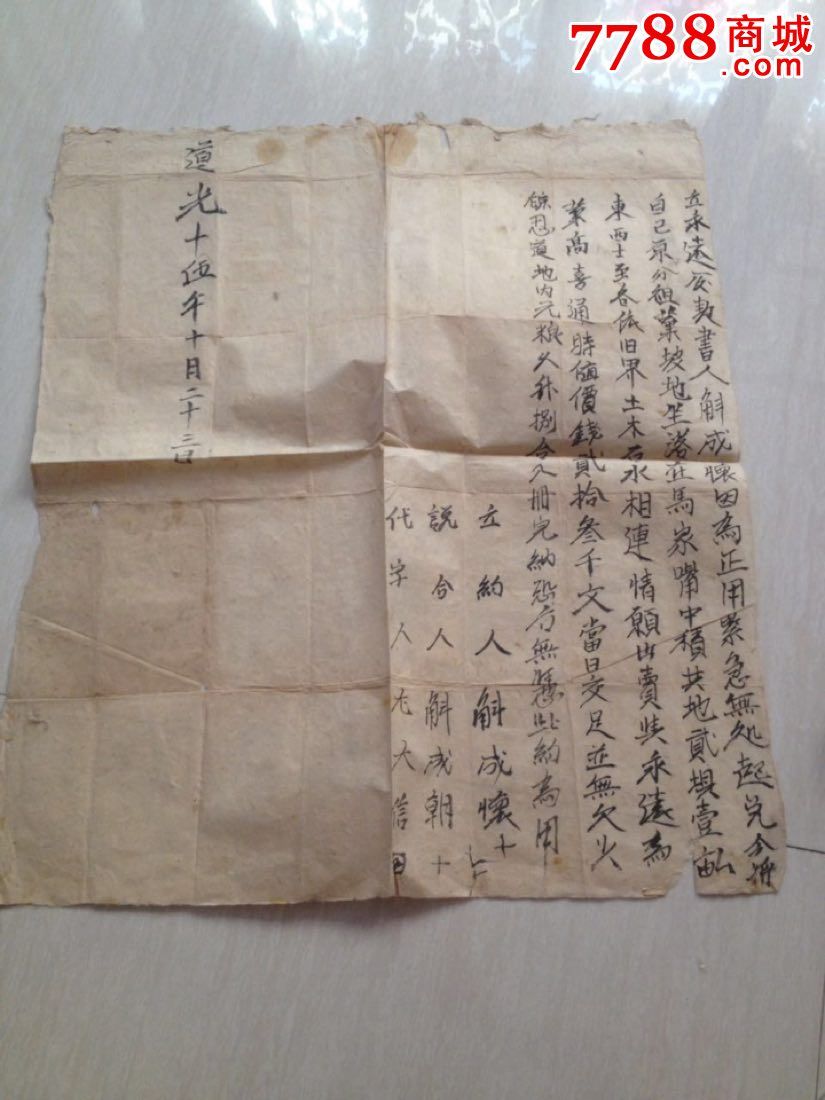 7788商城
立永遠死契書人斛成懷因為正用緊急無処起兌今將
自己原分祖業坡地坐落在馬家嘴中積共地貳塊壹畝
東西士至各依旧界土木石水相連情願出賣與永遠為
業高喜通時値價錢貳拾叁千文當日交足並無欠少
隨地內元粮入冊完納恐后無憑此約為用
立約人 斛成懷十
說合人 斛成朝十
代字人 大信
道光十伍年十月二十三日